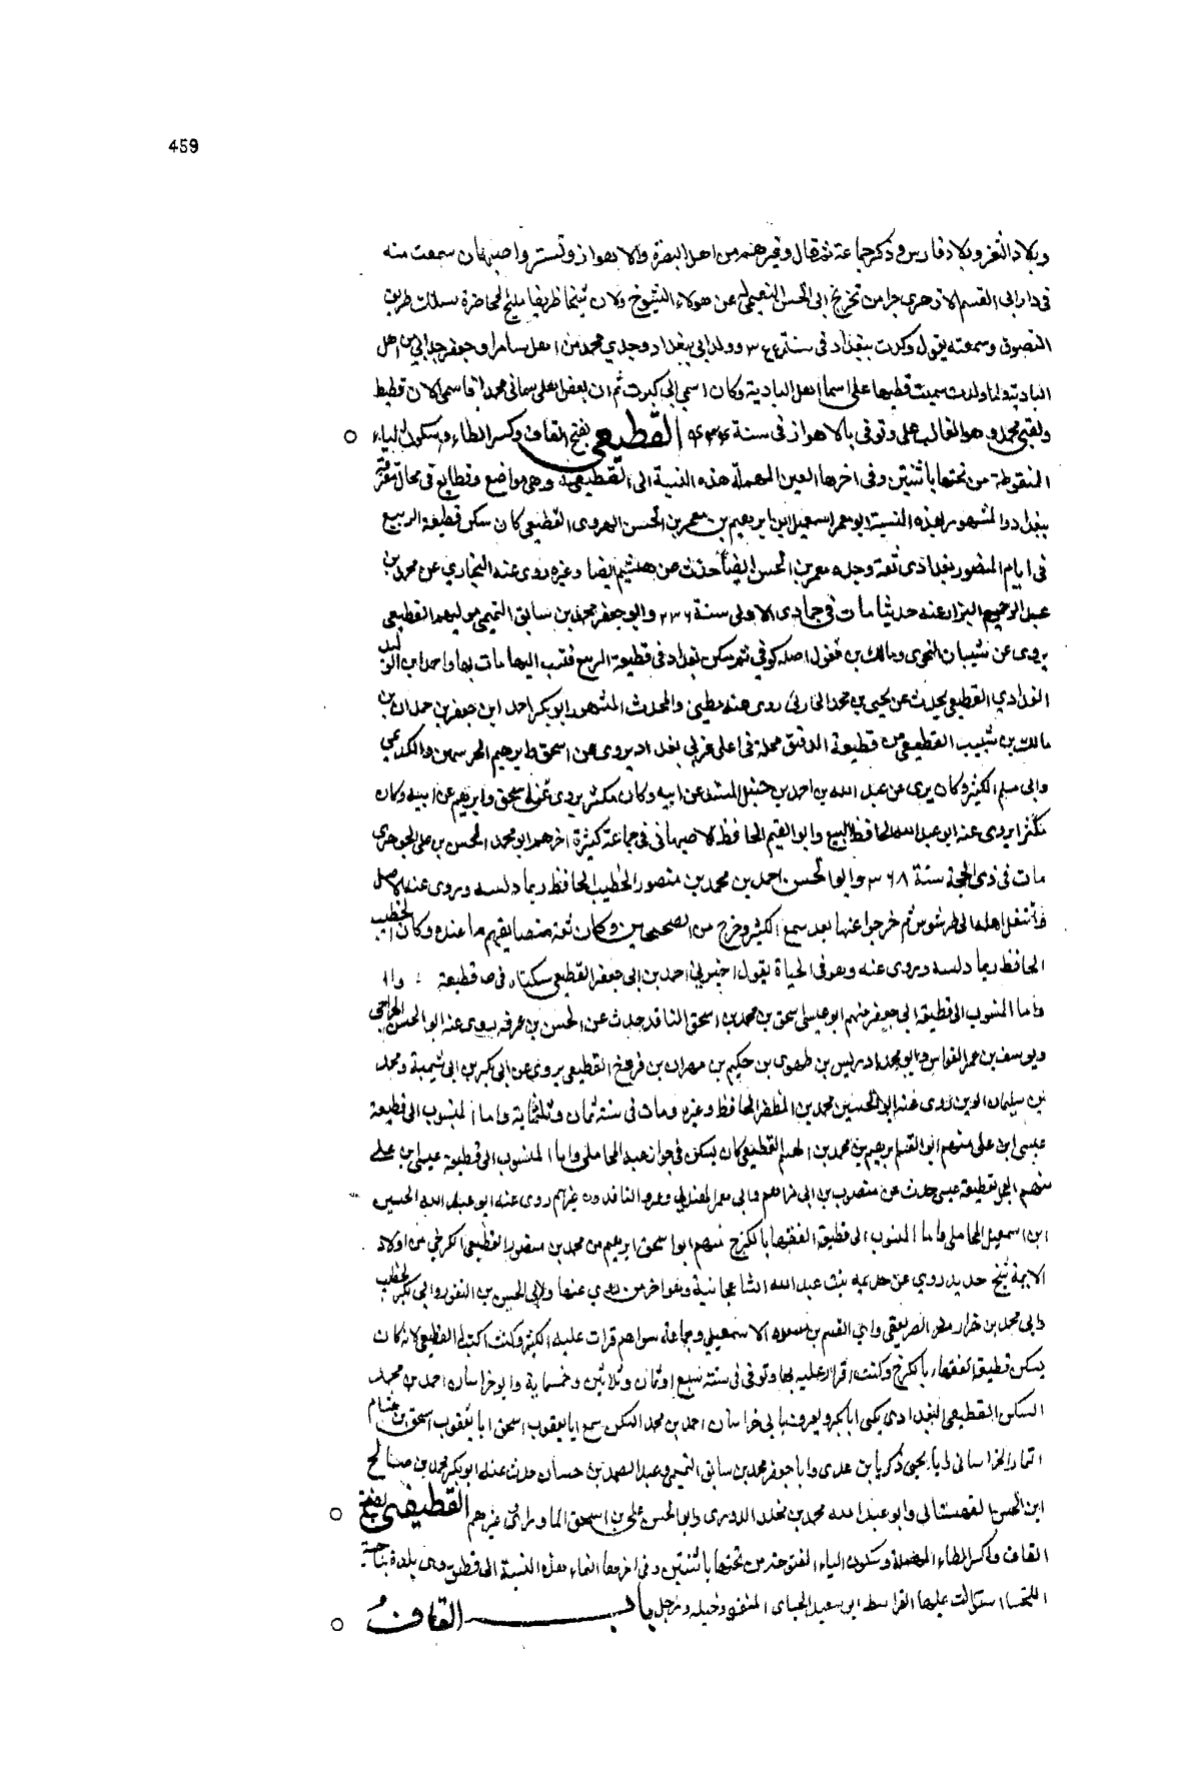 459
وبلاد الثغر وبلاد فارس وذكر جماعة ثم قال وغيرهم من اهل البصرة والاهواز وتستر واصبهان سمعت منه
فى دار ابى القسم الازهرى جزا من تخريج ابى الحسن النعيمى عن هولاء الشيوخ وكان شيخا ظريفا مليح المحاضرة سلك طريق
التصوف وسمعته يقول ولدت ببغداد فى سنة وولد ابى ببغداد وجدي محمد من اهل سامرا وجعفر جد ابي من اهل
البادية ولما ولدت سميت قطيطا على اسما اهل البادية وكان اسمي الى كبرت ثم ان بعض اهلى سمانى محمدا فاسمى الان قطيط
ولقبى محمد وهو الغالب على وتوفى بالاهواز فى سنة القطيعى بفتح القاف وكسر الطاء وسكون الياء
المنقوطة من تحتها باثنتين وفى اخرها العين المهملة هذه النسبة الى القطيعة وهى مواضع وقطايع فى محال متفرقة
ببغداد والمشهور بهذه النسبة ابو معمر اسمعيل ابن ابرهيم بن معمر بن الحسن الهروى القطيعى كان سكن قطيعة الربيع
فى ايام المنصور بغدادى ثقة وجده معمر بن الحسن ايضا حدث عن هشيم ايضا وغيره روى عنه البخاري عن محمد بن
عبد الرحيم البزار عنه حديثا مات فى جمادى الاولى سنة ٢٣٦ وابو جعفر محمد بن سابق التميمى موليهم القطيعى
يروى عن شيبان النحوى ومالك بن مغول اصله كوفى ثم سكن بغداد فى قطيعة الربيع فنسب اليها مات بها واحمد ابن الوليد
البغدادي القطيعى يحدث عن يحيى بن محمد الجارى روى عنه مطين والمحدث المشهور ابو بكر احمد ابن جعفر بن حمدان بن
مالك بن شبيب القطيعى من قطيعة الدقيق محلة فى اعلى غربى بغداد يروى عن اسحق وابرهيم الحربيين والكديمي
وابى مسلم الكثير وكان يروى عن عبد الله بن احمد بن حنبل المسند عن ابيه وكان مكثر يروى عن اسحق وابرهيم عن ابيه وكان
مكثرا يروى عنه ابو عبد الله الحافظ البيع وابو نعيم الحافظ الاصبهانى فى جماعة كثيرة اخرهم ابو محمد الحسن بن على الجوهري
مات فى ذى الحجة سنة ٣٦٨ وابو الحسن احمد بن محمد بن منصور الخطيب الحافظ ربما دلسه ويروى عنه
اهله الى طرسوس ثم خرجوا عنها بعد سمع الكثير وخرج من الصحيحين وكان ثقة ما عنده وكان الخطيب
الحافظ ربما دلسه ويروى عنه وهو فى الحياة يقول اخبرنى احمد بن ابى جعفر القطيعى سكناه فى قطيعة
واما المنسوب الى قطيعة ابى جعفر منهم ابو عيسى اسحق بن محمد بن اسحق الناقد حدث عن الحسن بن عرفه روى عنه ابو الحسن الجراحي
ويوسف بن عمر القواس وابو محمد ادريس بن طهوى بن حكيم بن مهران بن فروخ القطيعى يروى عن ابى بكر بن ابى شيبة ومحمد
بن سليمان لوين روى عنه ابو الحسين محمد بن المظفر الحافظ وغيره ومات فى سنة ثمان وثلثماية واما المنسوب الى قطيعة
عيسى ابن على منهم ابو القسم ابرهيم بن محمد بن الهيثم القطيعى كان يسكن فى جوار عبيد العجل واما المنسوب الى قطيعة عيسى بن على
روى عنه ابو عبد الله الحسين
ابن اسمعيل المحاملى واما المنسوب الى قطيعة الفقها بالكرخ منهم ابو اسحق ابرهيم بن محمد بن منصور القطيعى الكرخي من اولاد
الايمة شيخ روي عن بنت عبد الله الشاهجانية وهو اخر من روي عنها وابى الحسن بن النقور وابى بكر الخطيب
وابى محمد بن الصريفينى وابي القسم بن الاسمعيلى وجماعة سواهم قرات عليه الكثير وكنت اكتب له القطيعى لانه كان
يسكن قطيعة الفقها بالكرخ وكنت اقرا عليه بها وتوفى فى سنة سبع او ثمان وثلاثين وخمسماية وابو خراسان احمد بن محمد
السكن القطيعى البغدادى يكنى ابا بكر ويعرف بابى خراسان احمد بن محمد السكن سمع ابا يعقوب اسحق ابا يعقوب اسحق بن هشام
التمار الخراسانى وابا يحيى زكريا بن عدى وابا جعفر محمد بن سابق التميمى وعبد الصمد بن حسان حدث عنه ابو بكر محمد بن صالح
ابن الحسن القهستانى وابو عبد الله محمد بن مخلد الدورى وابو الحسن على بن اسحق المادرائى وغيرهم القطيفى بفتح
القاف وكسر الطاء المهملة وسكون الياء المنقوطة من تحتها باثنتين وفى اخرها الفاء هذه النسبة الى قطيف وهى بلدة بناحية
الاحسا استولت عليها ابو سعيد الجنابى باب القاف